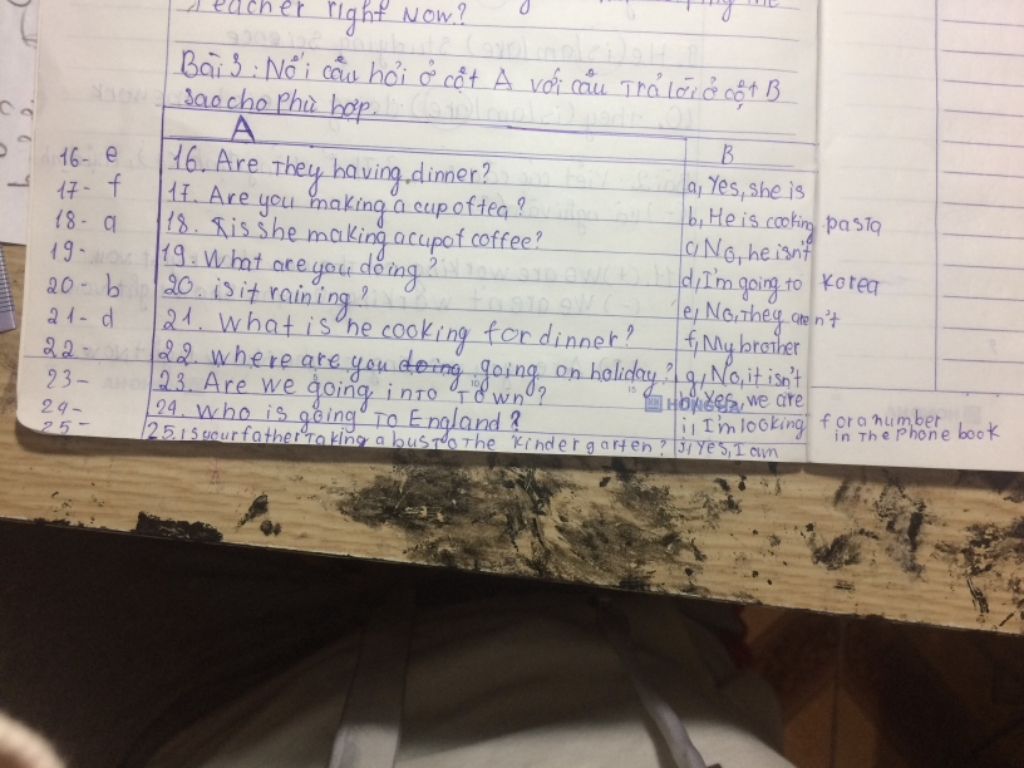 Teacher right Now?
Bài 3: Nối câu hỏi ở cột A với câu trả lời ở cột B
sao cho phù hợp.
A
B
16- e
16. Are they having dinner?
a, Yes, she is
17- f
17. Are you making a cup of tea?
b, He is cooking pasta
18- a
18. Is she making a cup of coffee?
c, No, he isn't
19-
19. What are you doing?
d, I'm going to Korea
20- b
20. is it raining?
e, No, they aren't
21- d
21. What is he cooking for dinner?
f, My brother
22-
22. where are you doing going on holiday?
g, No, it isn't
23-
23. Are we going into Town?
Yes, we are
24-
24. Who is going To England?
i, I'm looking for a number
in The Phone book
25-
25. is your father Taking a bus To The kindergarten?
j, Yes, I am